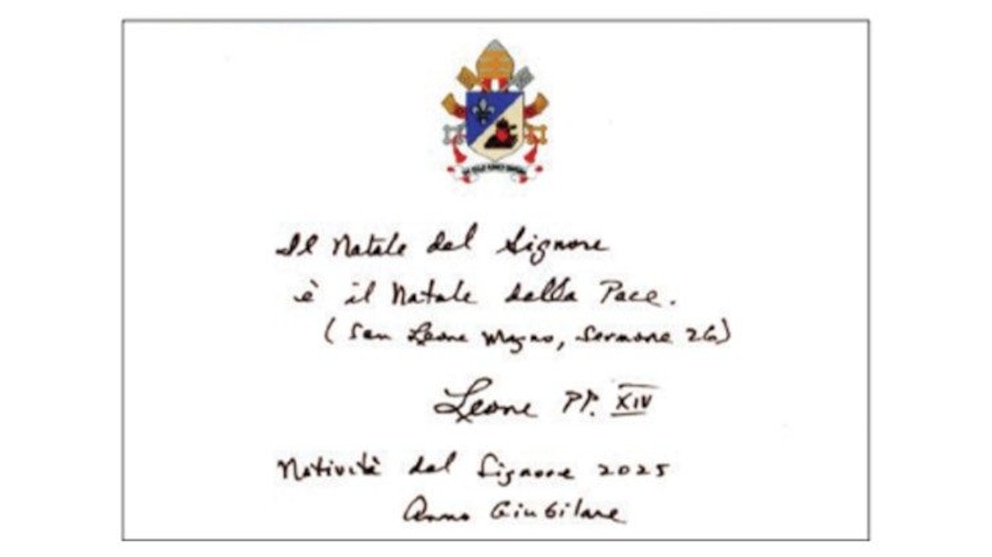 Il Natale del Signore
è il Natale della Pace.
(San Leone Magno, Sermone 26)
Leone PP. XIV
Natività del Signore 2025
Anno Giubilare